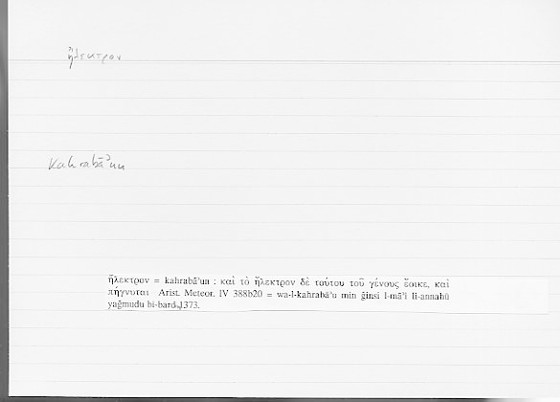 ἤλεκτρον
kahrabāʾun
ἤλεκτρον = kahrabāʾun : καὶ τὸ ἤλεκτρον δὲ ταύτου τοῦ γένους ἔοικε, καὶ
πήγνυται Arist. Meteor. IV 388b20 = wa-l-kahrabāʾu min ǧinsi l-māʾi li-annahū
yaǧmudu bi-bard.1373.